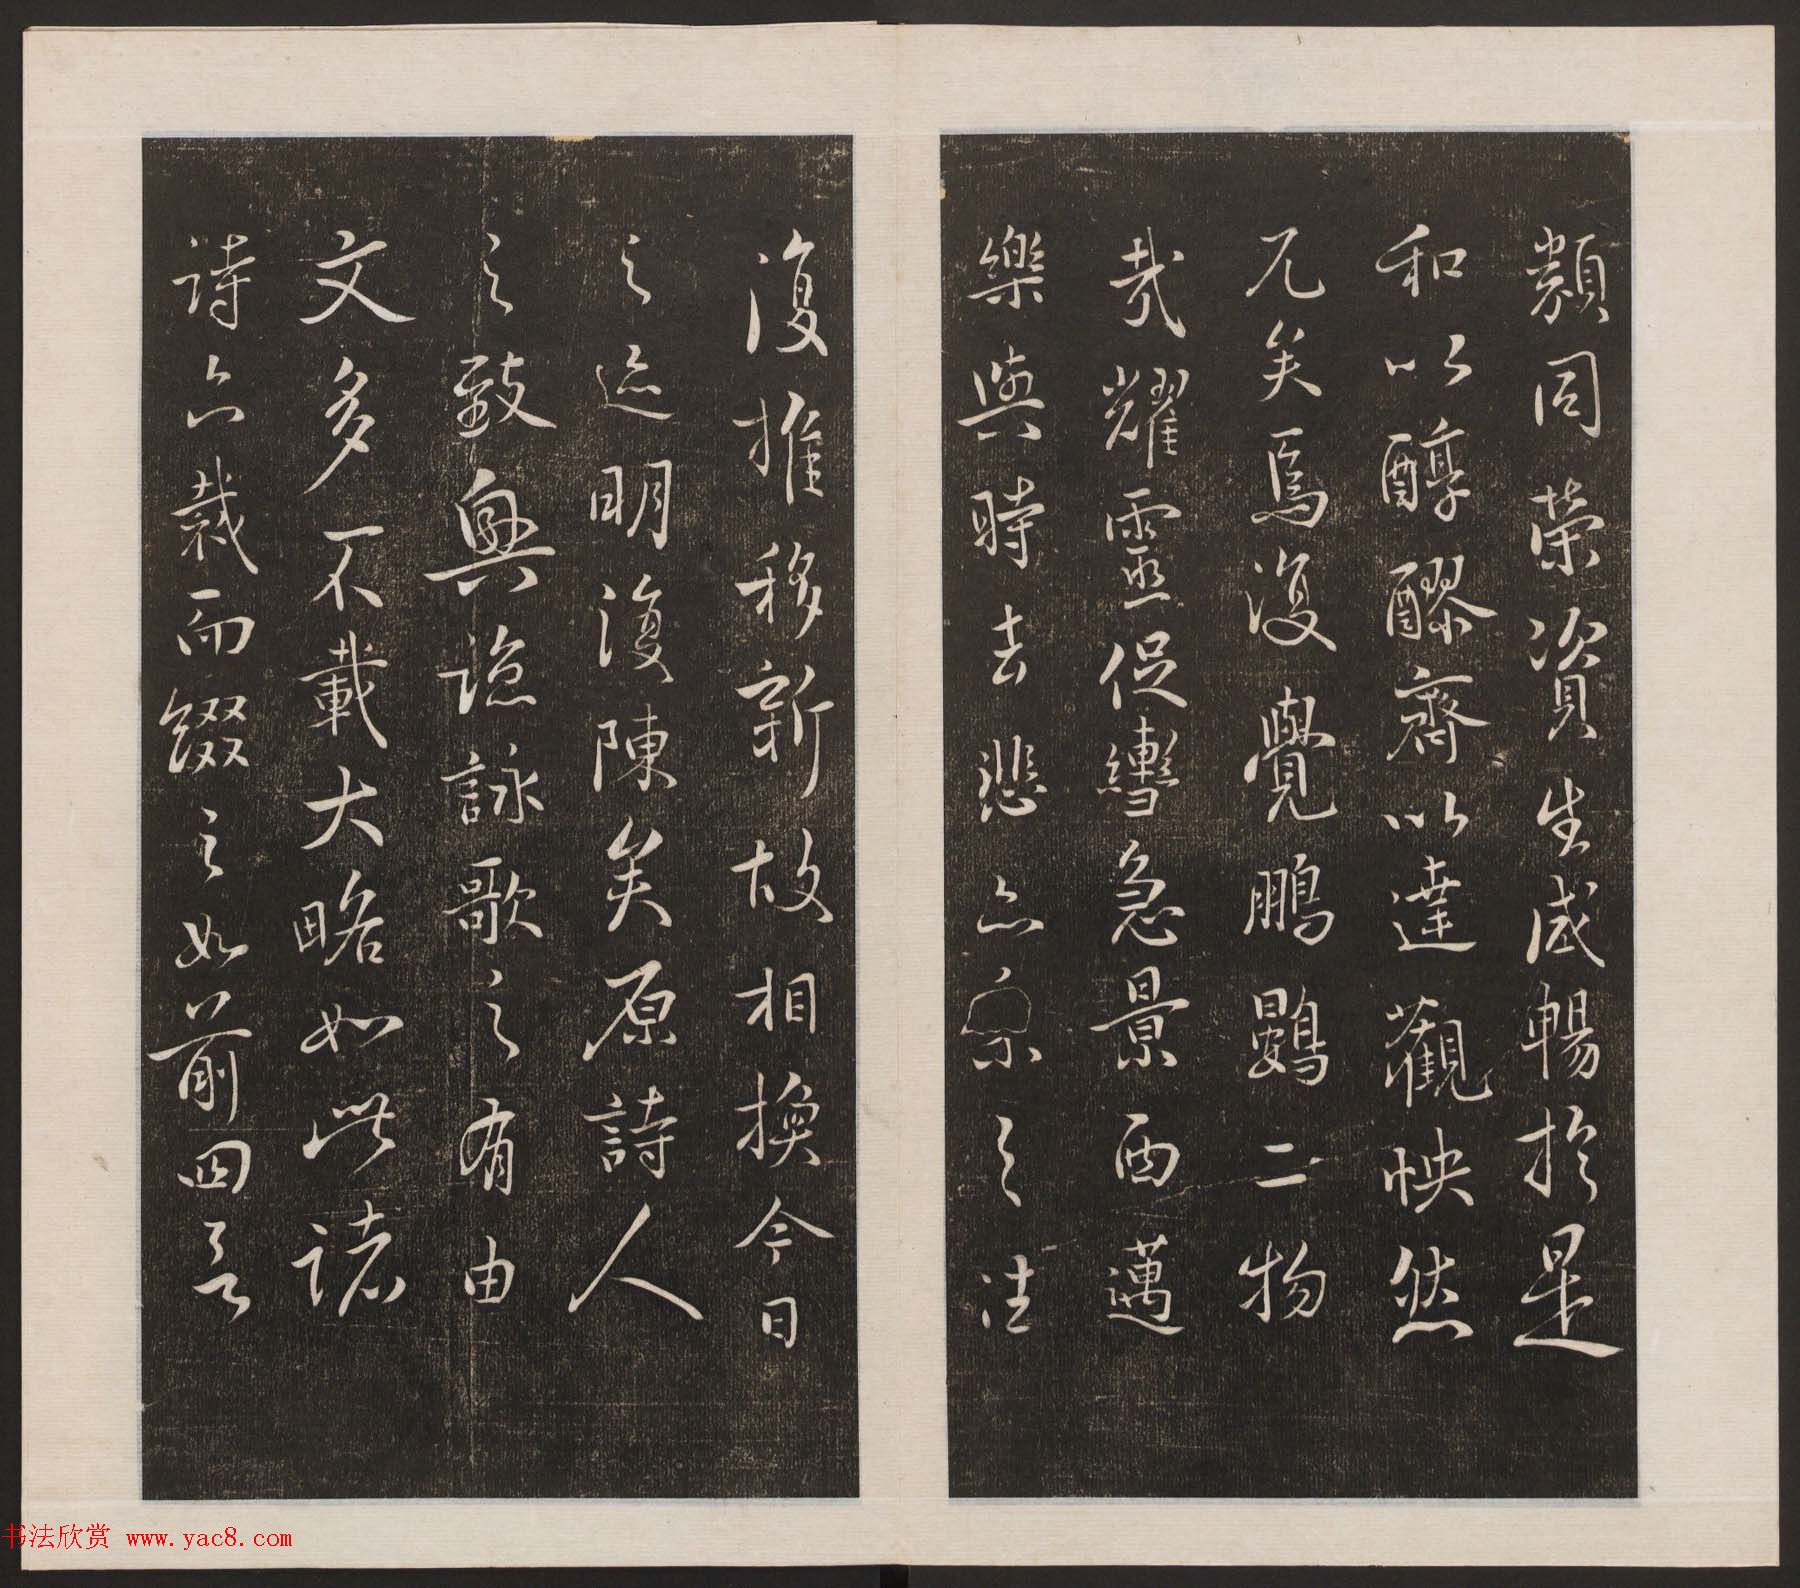 類同榮資生咸暢於是
和以醇醪齊以達觀怏然
兀矣焉復覺鵬鷃二物
哉耀靈促轡急景西邁
樂與時去悲亦系之往
復推移新故相換今日
之迹明復陳矣原詩人
之致興諒詠歌之有由
文多不載大略如此諸
詩亦裁而綴之如前四言
书法欣赏 www.yac8.com